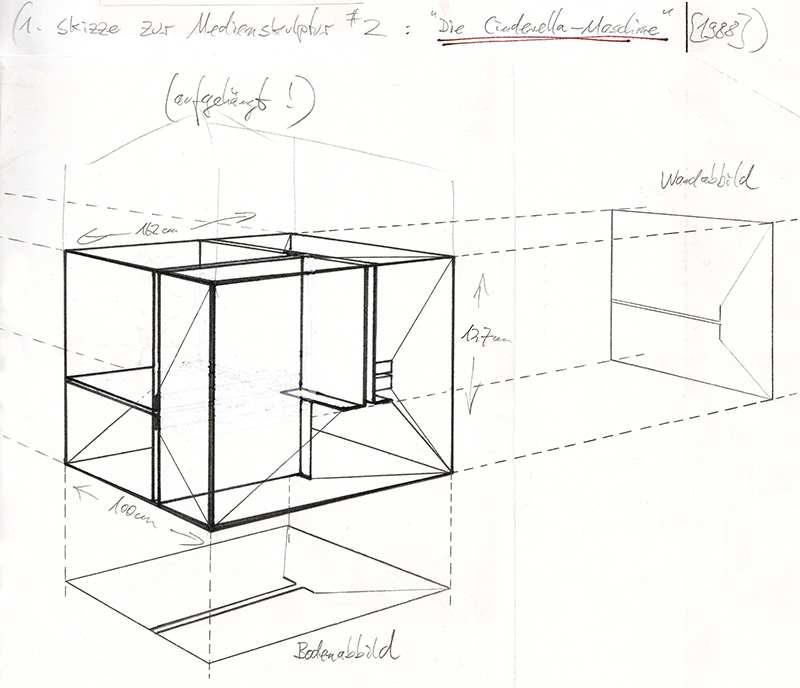 (1. Skizze zur Medienskulptur #2 : "Die Cinderella-Maschine" | {1988})
(aufgehängt !)
Wandabbild
162cm
127cm
100cm
Bodenabbild